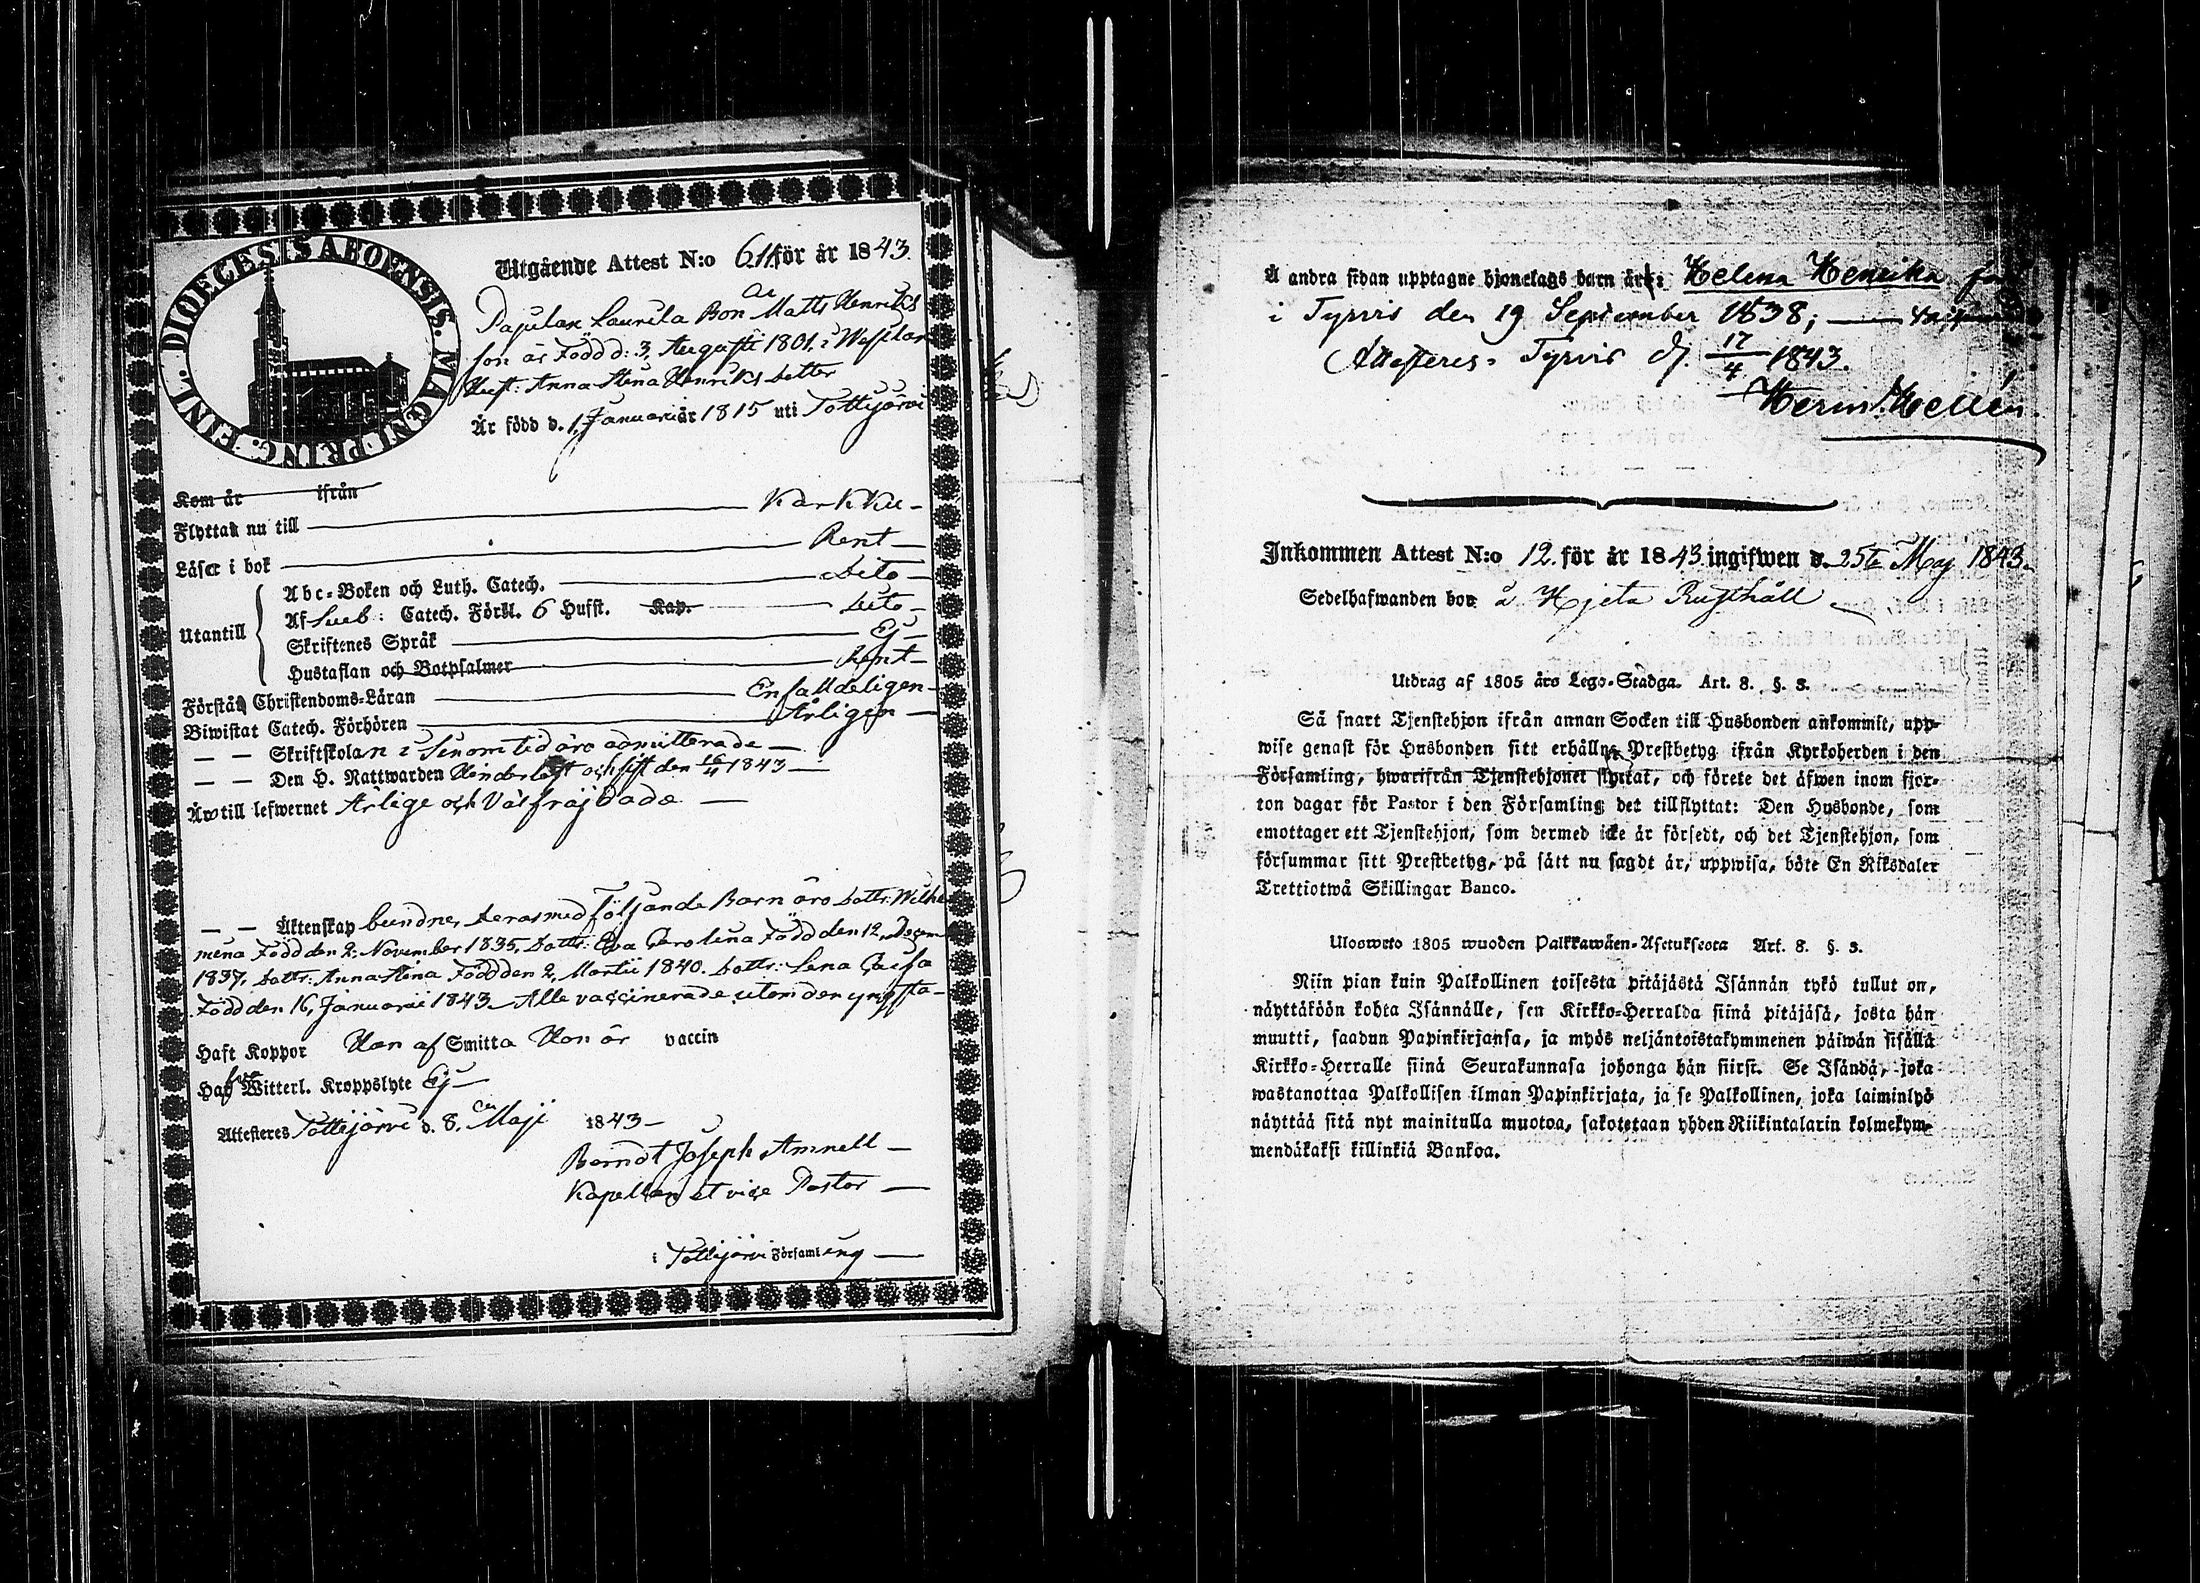 DIOECESIS ABOENSIS. MAGNI PRINC. FINL.
Utgående Attest N:o 61. för år 1843.
Papulax Laurila Bon Matts Henriks
son är Född d: 3. Augusti 1801. i
Hust: Anna Stina Henriks dotter
Är född d. 1. Januarii år 1815 uti Tottijärvi
Kom år ifrån
Flyttar nu till Karkku
Läser i bok Rent
Utantill
Abc-Boken och Luth. Catech. dito
Af Sveb: Catech. Förkl. 6 Hufst. Kap. dito
Skriftenes Språk Ej
Hustaflan och Botpsalmer Rent
Förstår Christendoms-Läran Enfalldeligen
Biwistat Catech. Förhören Årligen
— — Skriftskolan i Sinom tid äro admitterade
— — Den H. Nattwarden Hinderlöst och sist den 16/4 1843
Är till lefwernet Ärlige och Välfräjdade
— — Äktenskap bundne, deras med Följande Barn äro Dottr: Wilhel
mina Född den 2. November 1835. Dottr: Eva Carolina Född den 12. Decemb
1837. Dottr: Anna Stina Född den 2. Martii 1840. Dottr: Lena Cajsa
Född den 16. Januarii 1843. Alle vaccinerade utom den yngsta
Haft Koppor Han af Smitta Hon är vaccin
Haf Witterl. Kroppslyte Ej
Attesteres Tottijärvi d. 8. Maji 1843
Berndt Joseph Amnell
Kapellan et vice Pastor
i Tottijärvi Församling
Å andra sidan upptagne hjonelags barn är: Helena Henrika född
i Tyrvis den 19 September 1838;
Attesteres. Tyrvis d. 17/4 1843.
Herm. Hellén.
Inkommen Attest N:o 12. för år 1843 ingifwen d. 25te Maj 1843.
Sedelhafwanden bor å Hjeta Rusthåll
Utdrag af 1805 års Lego-Stadga. Art. 8. §. 3.
Så snart Tjenstehjon ifrån annan Socken till Husbonden ankommit, upp-
wise genast för Husbonden sitt erhållne Prestbetyg ifrån Kyrkoherden i den
Församling, hwarifrån Tjenstehjonet flyttat, och förete det äfwen inom fjor-
ton dagar för Pastor i den Församling det tillflyttat: Den Husbonde, som
emottager ett Tjenstehjon, som dermed icke är försedt, och det Tjenstehjon, som
försummar sitt Prestbetyg, på sätt nu sagdt är, uppwisa, böte En Riksdaler
Trettiotwå Skillingar Banco.
Ulosweto 1805 wuoden Palkkawäen-Asetuksesta Art. 8. §. 3.
Niin pian kuin Palkollinen toisesta pitäjästä Isännän tykö tullut on,
näyttäköön kohta Isännälle, sen Kirkko-Herralda siinä pitäjäsä, josta hän
muutti, saadun Papinkirjansa, ja myös neljäntoistakymmenen päiwän sisällä
Kirkko-Herralle siinä Seurakunnasa johonga hän siirst. Se Isändä, joka
wastanottaa Palkollisen ilman Papinkirjata, ja se Palkollinen, joka laiminlyö
näyttää sitä nyt mainitulla muotoa, sakotetaan yhden Riikintalarin kolmekym-
mendäkaksi killinkiä Bankoa.